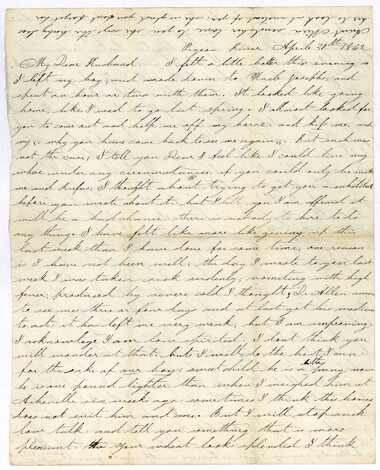 Pigeon River April 20th 1862
My Dear Husband I felt a little better this evening so
I left my boy, and made down to Uncle Josephs, and
spent an hour or two with them. It looked like going
home, like I used to go last spring. I almost looked for
you to come out and help me off my horse and kiss me, and
say "why you have come back to see me again". But such was
not the case, I tell you Dear I feel like I could live any
where under any circumstances, if you could only be with
me and Rufus, I thought about trying to get you a substitute
before you wrote about it but I tell you I am afraid it
will be a bad chance there is nobody to hire to do
any thing. I have felt like more like giving up this
last week than I have done for some time, one reason
is I have not been well, the day I wrote to you last
week I was taken sick suddenly, vomiting with high
fever produced by severe cold I thought, Dr Allen came
to see me three or four days and at last got his medicine
to act, it has left me very weak, but I am improving
I acknowledge I am low spirited, I dont think you
will wonder at that. but I will do the best I can
for the sake of our boy, sweet child he is a puny now
he is one pound lighter than when I weighed him at
Asheville six weeks ago. sometimes I think this house
does not suit him and me. But I will stop such
low talk and tell you something that is more
pleasant Your wheat looks splendid I think